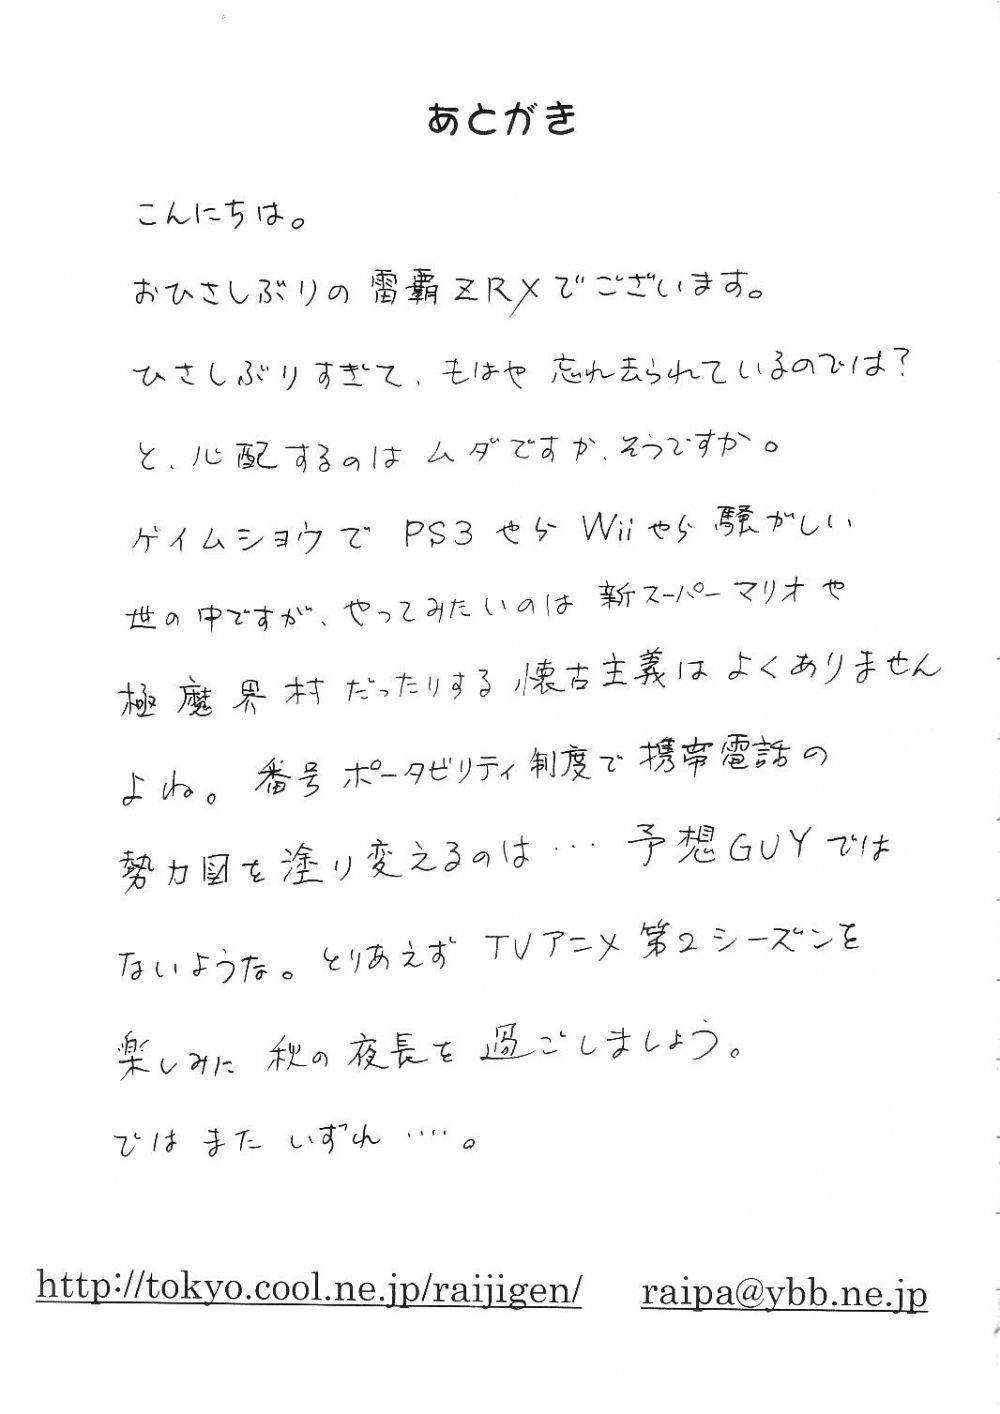 あとがき
こんにちは。
おひさしぶりの雷覇ZRXでございます。
ひさしぶりすぎて、もはや忘れ去られているのでは?
と、心配するのはムダですか、そうですか。
ゲイムショウでPS3やらWiiやら騒がしい
世の中ですが、やってみたいのは新スーパーマリオや
極魔界村だったりする懐古主義はよくありません
よね。番号ポータビリティ制度で携帯電話の
勢力図を塗り変えるのは…予想GUYでは
ないような。とりあえずTVアニメ第2シーズンを
楽しみに秋の夜長を過ごしましょう。
ではまたいずれ‥‥。
http://tokyo.cool.ne.jp/raijigen/ raipa@ybb.ne.jp